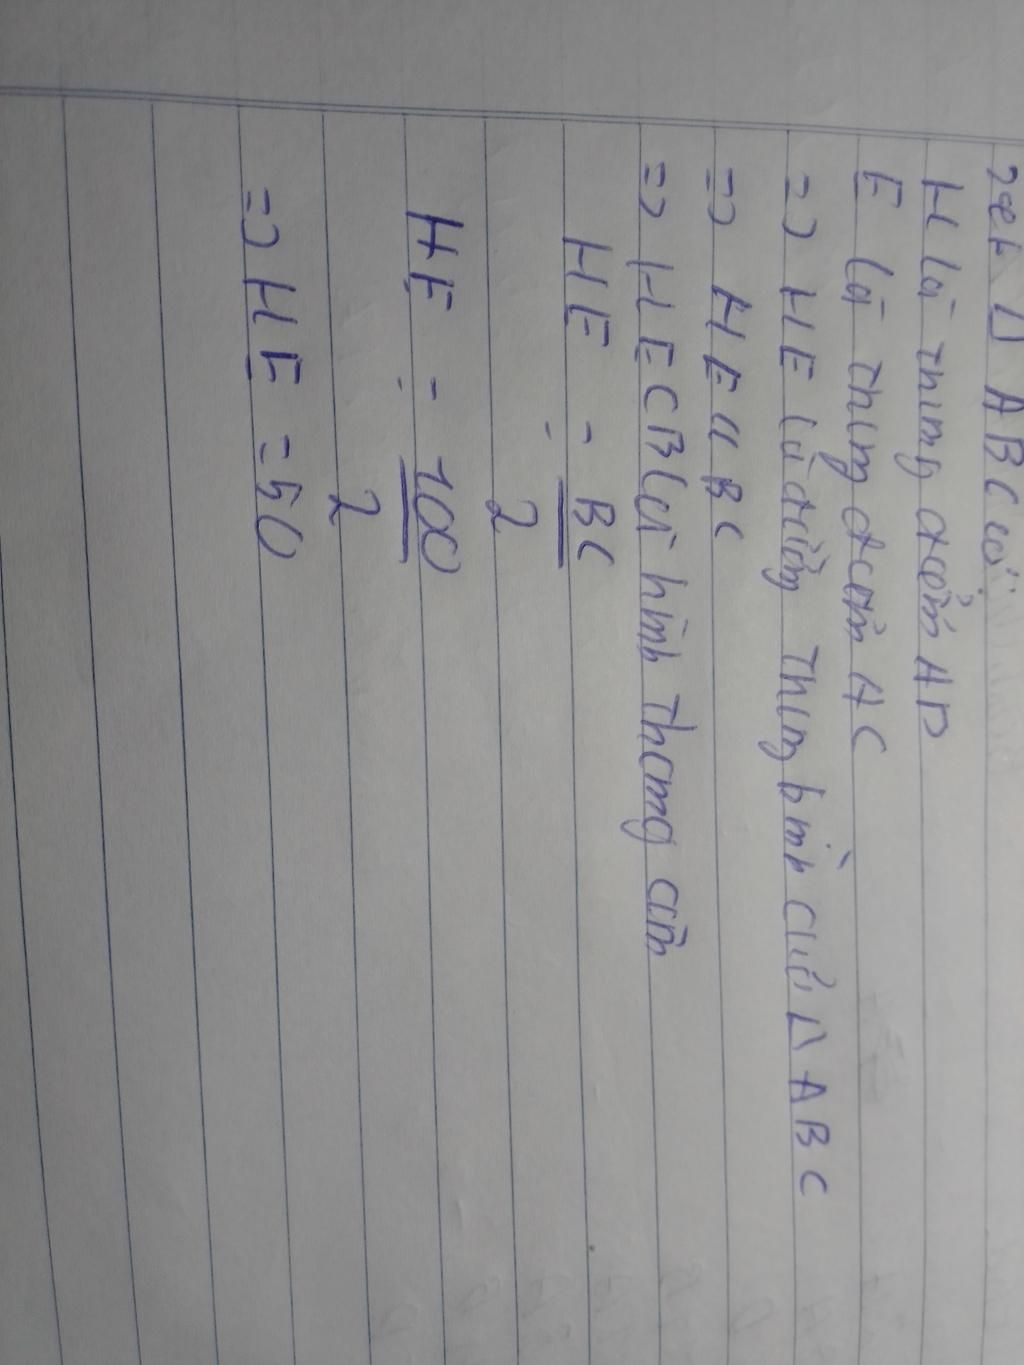 Xét Δ ABC có:
H là trung điểm AB
E là trung điểm AC
=> HE là đường trung bình của Δ ABC
=> HE // BC
=> HECB là hình thang cân
HE = BC
2
HE = 100
2
=> HE = 50